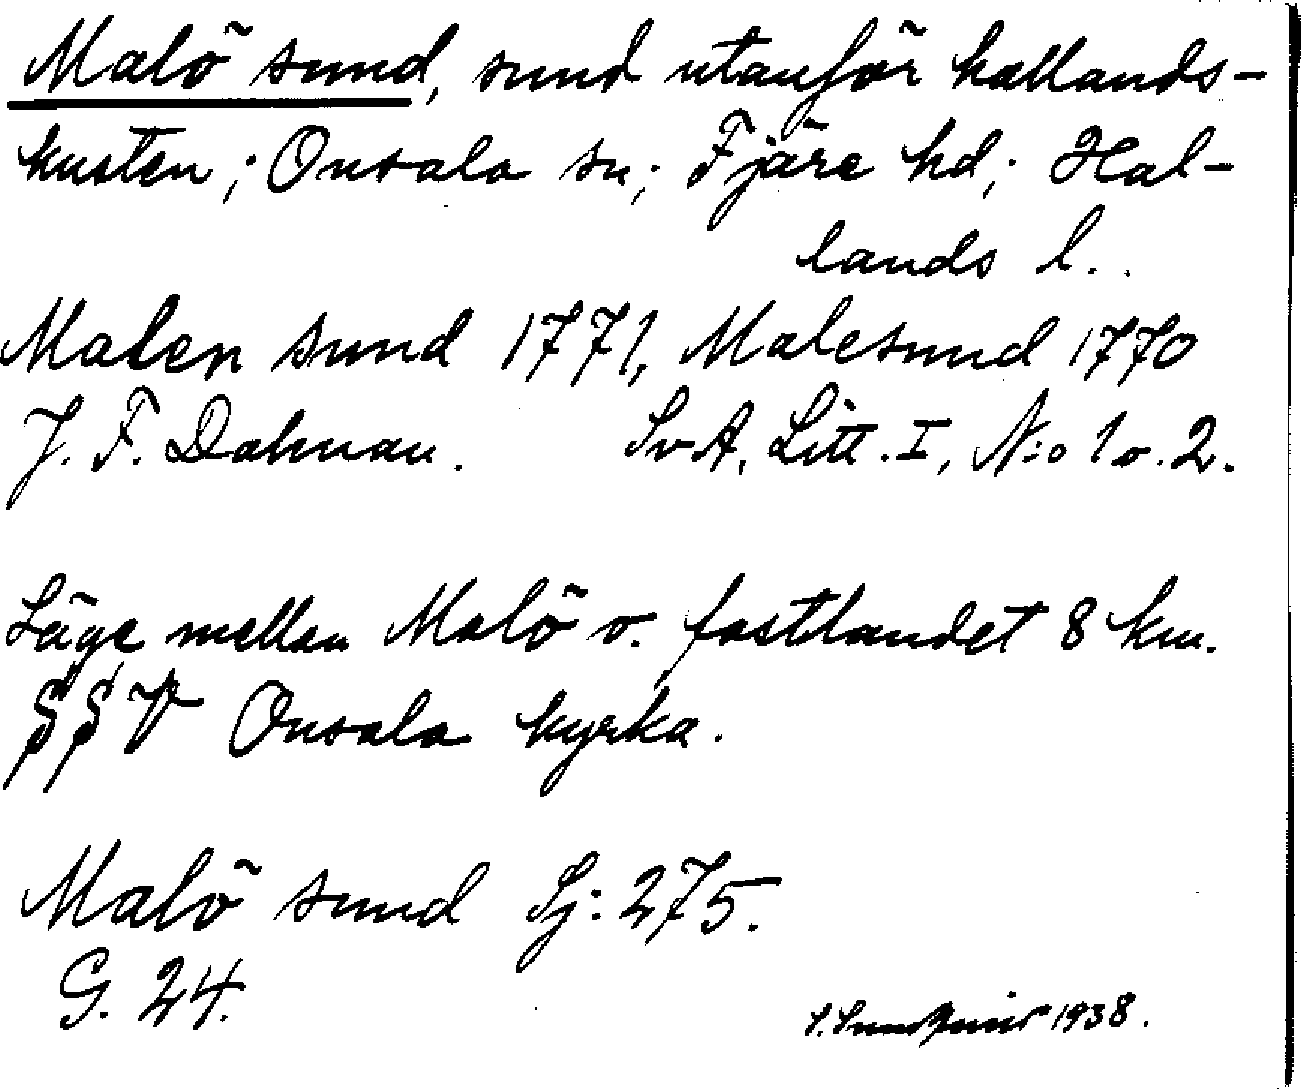 Malö sund, sund utanför hallands-
kusten; Onsala sn; Fjäre hd; Hal-
lands l.
Malen sund 1771, Malesund 1770
J. F. Dahman. SvA, Litt. I, N:o 1 o. 2.
Läge mellan Malö o. fastlandet 8 km.
SSV Onsala kyrka.
Malö sund Sj: 275.
G. 24.
1938.